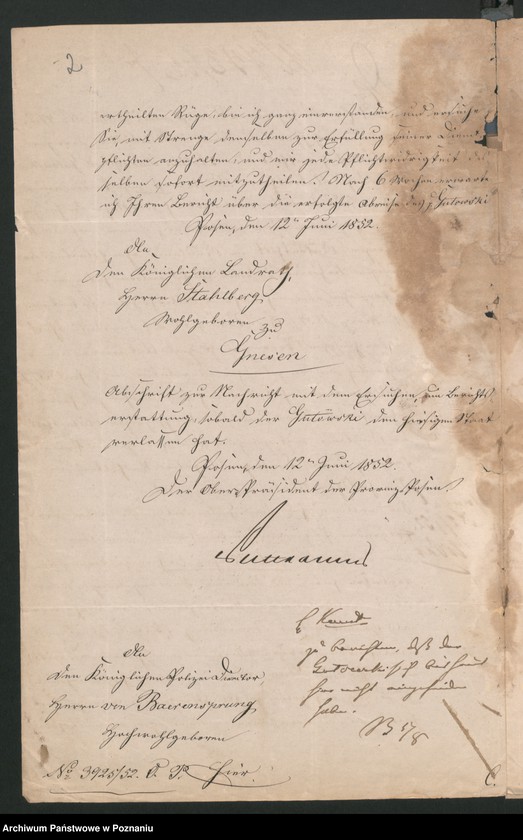 2
ertheilten Rüge, bin ich ganz einverstanden, und ersuche
Sie, mit Strenge denselben zur Erfüllung seiner Dienst
pflichten anzuhalten, und mir jede Pflichtwidrigkeit
selben sofort mitzutheilen. Nach 6 Wochen erwarte
ich Ihren Bericht über die erfolgte Abreise des p. Gutowski
Posen, den 12ten Juni 1852.
An
den Königlichen Landrath,
Herrn Stahlberg
Wohlgeboren
zu
Gnesen
Abschrift zur Nachricht mit dem Ersuchen um Berichts
erstattung, sobald der Gutowski den hiesigen Staat
verlassen hat.
Posen, den 12ten Juni 1852.
Der Ober-Präsident der Provinz Posen.
An
den Königlichen Polizei Director
Herrn von Baerensprung
Hochwohlgeboren
No. 3925/52. O. P. hier.
zu berichten, daß der
Gutowski sich bis heut
hier nicht eingefunden
habe.
B 17/8
Archiwum Państwowe w Poznaniu